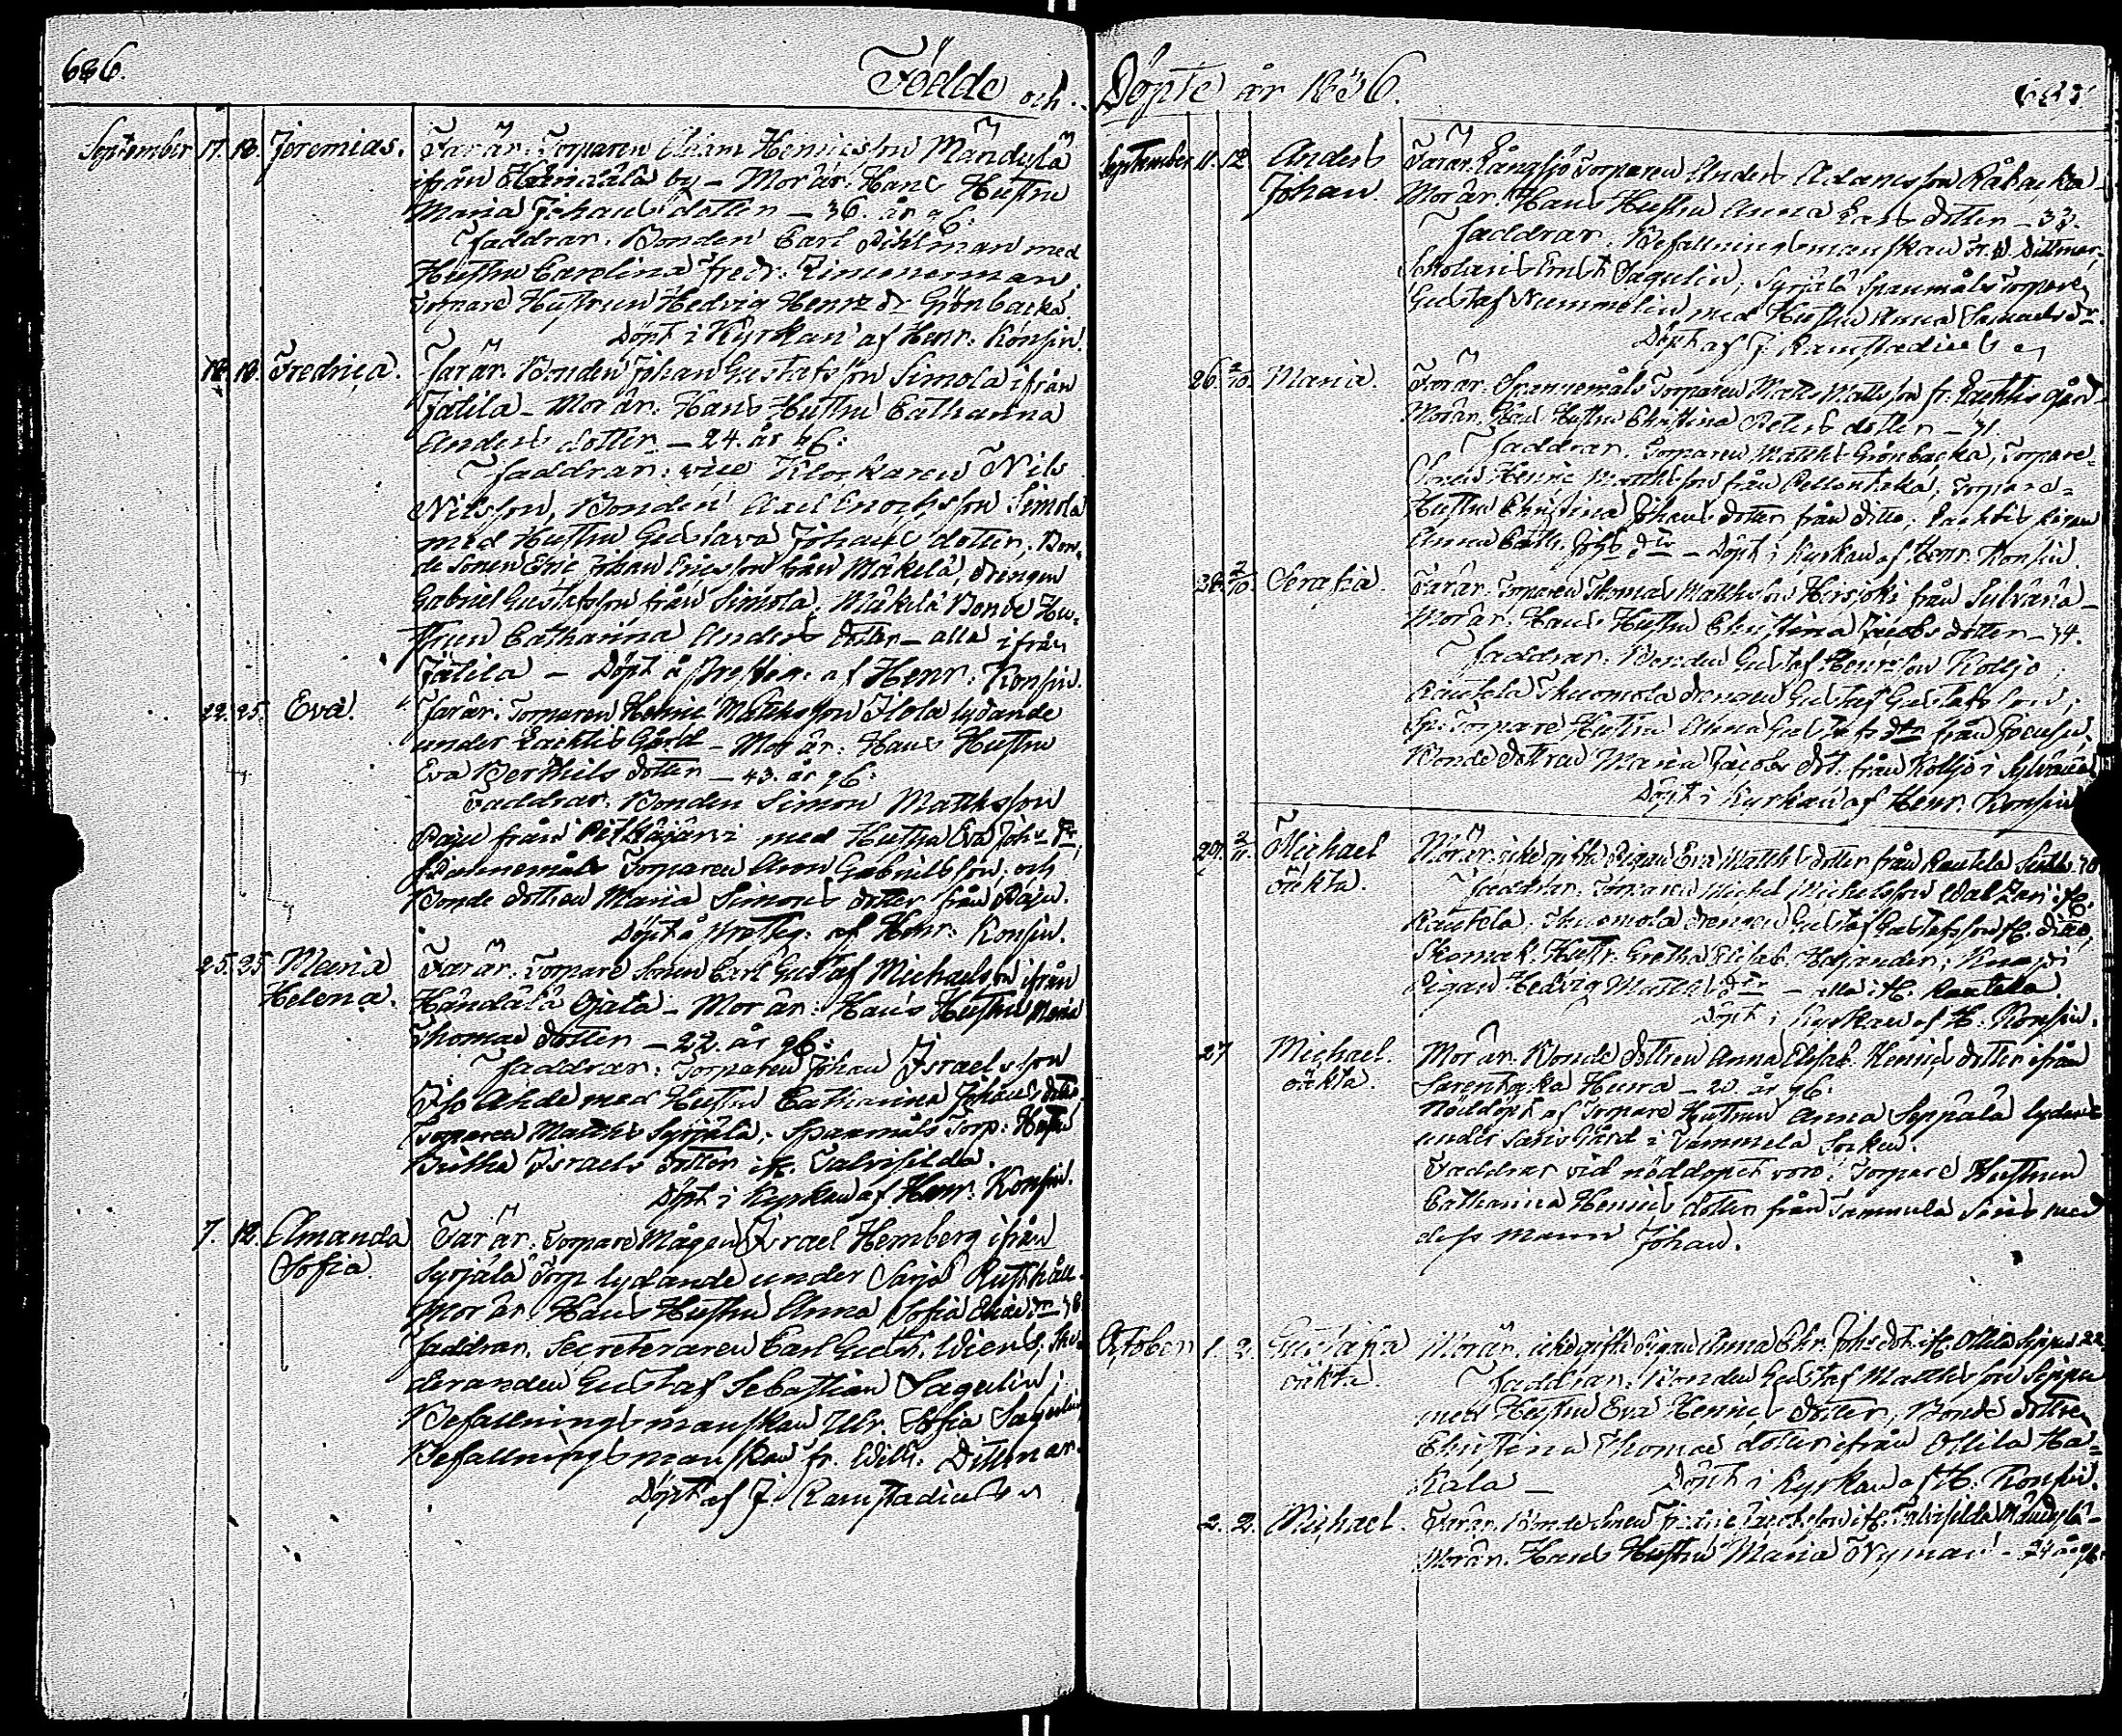 686.
Födde och
September 17. 18. Jeremias. Far är. Torparen Henricsson Mändylä
ifrån by - Mor är. Hans Hustru
Maria Johans dotter - 36. år
Faddrar. Bonden Carl Pihlman med
Hustru Carolina Fredr. Zimmerman,
Torpare Hustrun Hedvig Henr: dr Grönbacka.
Döpt i Kyrkan af Henr: Konsin.
18. 18. Fredrica. Far är. Bonden Johan Gustafsson Simola ifrån
Jätila - Mor är. Hans Hustru Catharina
Anders dotter - 24. år g:
Faddrar: vice Klockaren Nils
Nilsson, Bonden Axel Enochsson Simola
med Hustru Gustava Johans dotter. Bon-
de Sonen Eric Johan Ericsson från Mäkelä, drengen
Gabriel Gustafsson från Simola; Mäkelä Bonde Hu-
strun Catharina Anders dotter - alla ifrån
Jätila - Döpt å af Henr: Konsin.
22. 25. Eva. Far är. Torparen Henric Matthsson Flola lydande
under Gård - Mor är: Hans Hustru
Eva Berthils dotter - 43. år g:
Faddrar. Bonden Simon Matthsson
Paju från Pitkäjärvi med Hustru Eva Joh: Dr.
Spannemåls Torparen Aron Gabrielsson, och
Bonde dottren Maria Simons dotter från Paju.
Döpt å af Henr: Konsin.
25. 25. Maria Far är. Torpare Sonen Carl Gustaf Michaelsson ifrån
Helena. Händälä Ojala - Mor är: Hans Hustru Maria
Thomas dotter - 22. år g:
Faddrar: Torparen Johan Israelsson
Iso Ahde med Hustru Catharina Johans dotter
Torparen Matths Syrjälä; Spanmåls Torp: Hustru
Israels dotter ifr. Talvisilda.
Döpt i Kyrkan af Henr: Konsin.
7. 12. Amanda Far är: Torpare Mågen Israel Hemberg ifrån
Sofia. Syrjälä Torp lydande under Sarjo Rusthåll.
Mor är. Hans Hustru Anna Sofia dr
Faddrar. Secreteraren Carl Gust. Stu-
deranden Gustaf Sebastian Sagulin;
Befallningsmanskan Ulr. Sofia Sagulin
Befallningsmanskan Fr. Wilh: Dittmar.
Döpt af J. Ramstadius
Döpte år 1836.
687.
September 11. 12. Anders Far är. Långsjö Torparen Anders Adamsson
Johan. Mor är. Hans Hustru Anna Carls dotter - 33.
Faddrar. Befallningsmanskan Fr. W. Dittmar
Sagulin, Syrjälä Spanmåls Torpare
Gustaf Nummelin med Hustru Anna Samuels dr.
Döpt af J. Ramstadius
26. 2/10. Maria. Far är. Spannemåls Torparen Matts Mattsson fr. gård
Mor är. Hans Hustru Christina Peters dotter - 41
Faddrar. Torparen Matths Grönbacka, Torpare-
Sonen Henric Matthsson från Pellontaka, Torpare-
Hustru Christina Johans dotter från ditto; Pigan
Anna Cath. Johs dr - Döpt i Kyrkan af Henr. Konsin.
28. 2/10. Serafia. Far är. Torparen Thomas Matthsson från Sulvänä -
Mor är. Hans Hustru Christina Jacobs dotter - 34.
Faddrar. Bonden Gustaf Henricsson Kolljo;
Rautela Thuomola drengen Gustaf Gustafsson;
Sp: Torpare Hustru Anna Gustafs dtr från
Bonde dottren Maria Jacobs dot. från Kolljo i
Döpt i Kyrkan af Henr. Konsin
29. 2/11. Michael Mor är. icke gifta Pigan Eva Matths dotter från Rautela
oäkta. Faddrar. Torparen Michel Michelsson
Rautela. Thuomola drengen Gustaf Gustafsson
Skomak. Hustr. Gretha Elisab. Heljander;
Pigan Hedvig Matths dr - alla ifr. Rautela.
Döpt i Kyrkan af H. Konsin.
27 Michael. Mor är. Bonde dottren Anna Elisab. Henrics dotter ifrån
oäkta. - 20 år g:
Nöddöpt af Torpare Hustrun Anna Seppälä lydande
under Saris Gård i Tammela Socken.
Faddrar vid nöddopet voro: Torpare Hustrun
Catharina Henrics dotter från Tammela Saris med
dess mann Johan.
October 1. 2. Gustafva Mor är. icke gifta Pigan Anna Chr. Johs dot. ifr. Ollila Seppä 22
oäkta. Faddrar. Bonden Gustaf Matthsson Seppä
med Hustru Eva Henrics dotter, Bonde dottren
Christina Thomas dotter ifrån Ollila Ha-
kala - Döpt i Kyrkan af H. Konsin.
2. 2. Michael. Far är. Bonde Sonen Jacobsson ifr. Talvisilda Mändylä -
Mor är. Hans Hustru Maria Nyman - 24 år g: